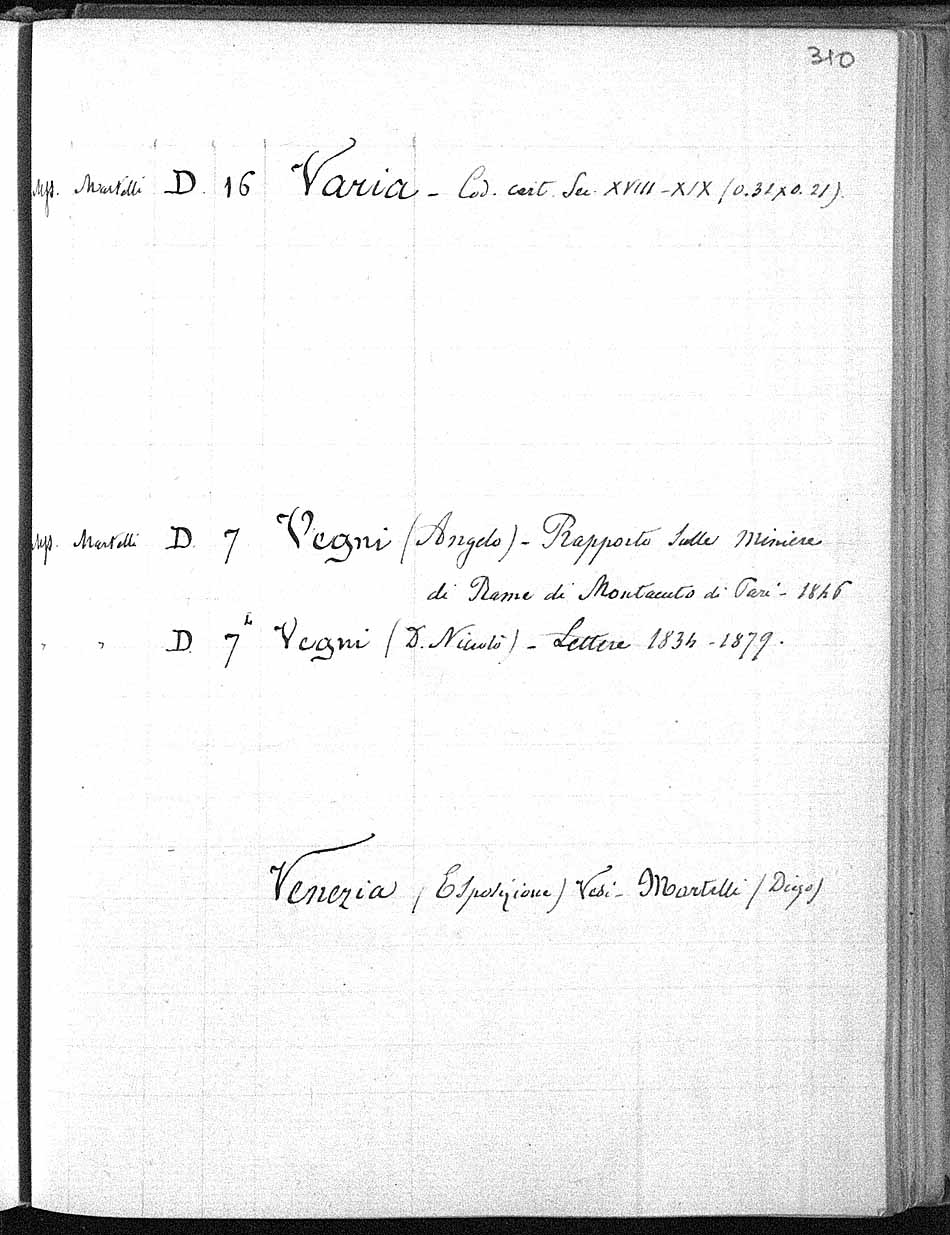 310
Mss. Martelli D. 16 Varia - Cod. cart. Sec. XVIII-XIX (0.31x0.21).
Mss. Martelli D. 7 Vegni (Angelo) - Rapporto sulle miniere
di Rame di Montacuto di Pari - 1846
" " D. 7⁴ Vegni (D. Niccolò) - Lettere 1834-1879.
Venezia (Esposizione) Vedi - Martelli (Diego)